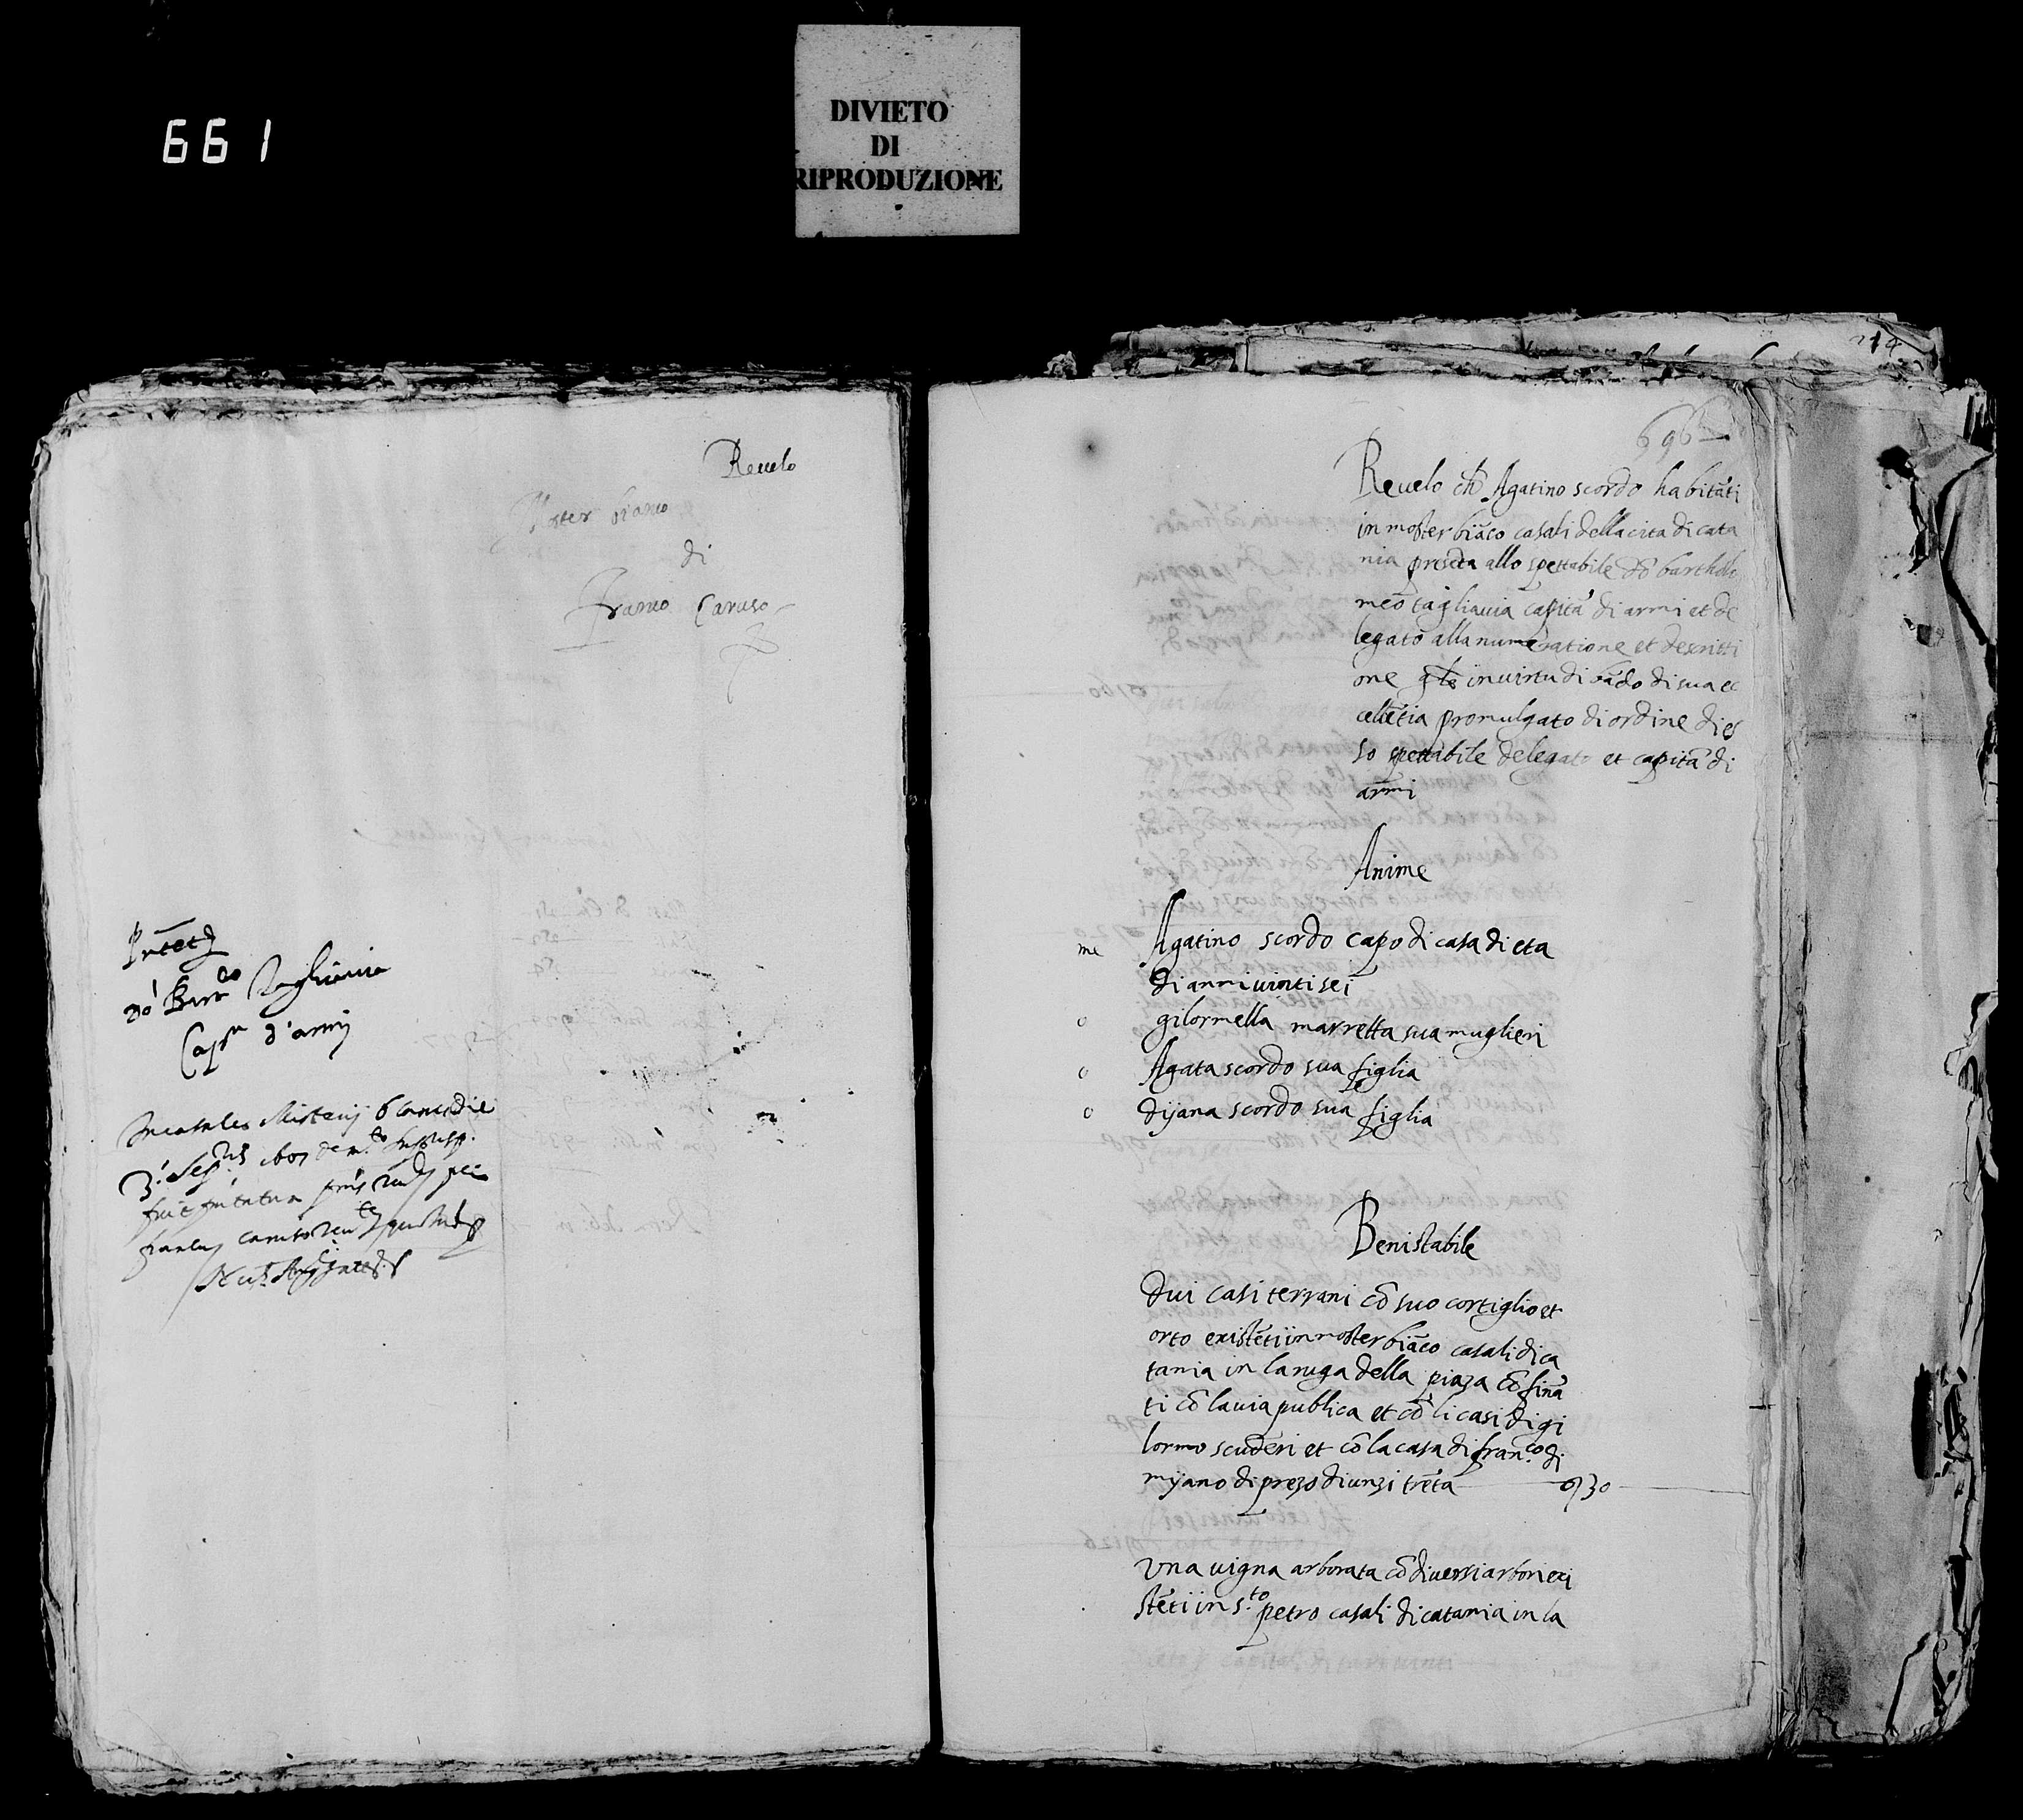 661
DIVIETO
DI
RIPRODUZIONE
214
Revelo
Moster bianco
di
Franco Caruso
Don Barr.eo Tagliavia
Cap.n d'armi
696
Revelo ch Agatino scordo habitāti
in moster biāco casali della cita di cata
nia presēta allo spettabile dō bartholo
meo tagliavia capitā di armi et de
legato alla numeratione et descritti
one in virtu di bādo di sua ec
cellētia promulgato di ordine di es
so spettabile delegato et capitā di
armi
Anime
me Agatino scordo capo di casa di eta
di anni vinti sei
o gilormella marretta sua muglieri
o Agata scordo sua figlia
o dijana scordo sua figlia
Beni stabile
Dui casi terrani cō suo cortiglio et
orto existēti in moster biāco casali di ca
tania in la ruga della piaza cō finā
ti cō la via publica et cō li casi di gi
lormo scuderi et cō la casa di fran.co di
mijano di prezo di unzi trēta 30
Una vigna arborata cō diversi arbori exi
stēti in s.to petro casali di catania in la